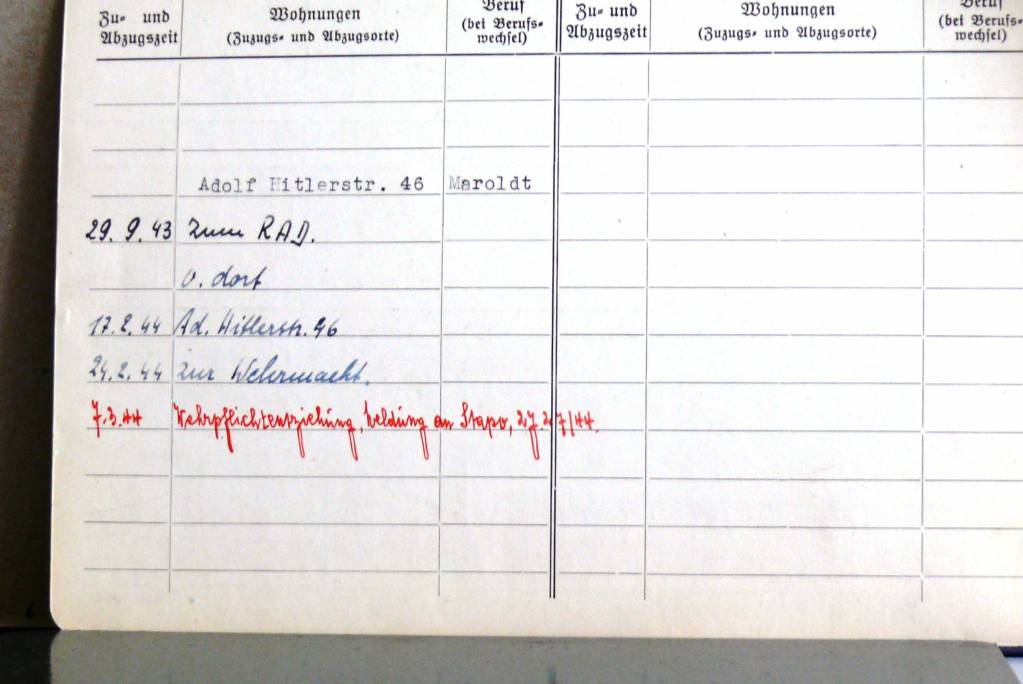 Zu- und Abzugszeit
Wohnungen
(Zuzugs- und Abzugsorte)
Beruf
(bei Berufs-
wechsel)
Zu- und
Abzugszeit
Wohnungen
(Zuzugs- und Abzugsorte)
Beruf
(bei Berufs-
wechsel)
Adolf Hitlerstr. 46 Maroldt
29. 9. 43 Zum RAD.
v. dort
17.2.44 Ad. Hitlerstr. 46
24.2.44 Zur Wehrmacht.
7.3.44 Wehrpflichtentziehung, Meldung an Stapo,